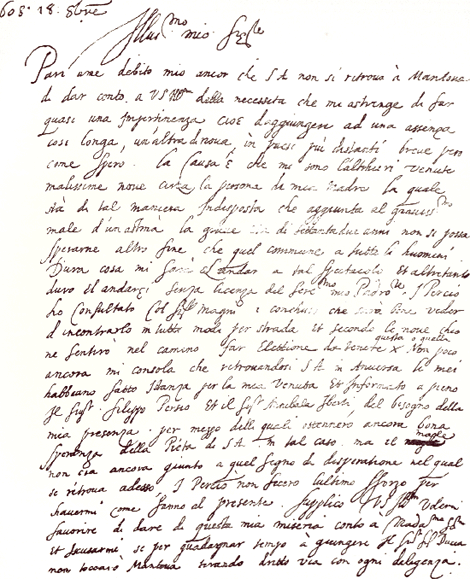 605. 28. 8bre
Illus.mo mio Sig.re
Pari ame debito mio ancor che S A non si ritrova à Mantova
di dar conto a V S Ill. della necessita che mi astringe di far
quasi una Impertinenza CIOE daggiungere ad una assenza
cosi longa, un altra di nova, in paesi più distanti breve pero
come spero. la Causa E che me sono l'altrieri venute
malissime nove circa la persona de mia Madre la quale
stà di tal maniera Indisposta che aggiunta al graviss.mo
male d'un asma la di settanta due anni non si possa
sperarne altro fine che quel commune a tutti li huomeni.
Dura cosa mi Sarà el andar a tal spectacolo Et altretanto
duro el anderci senza licenza del Sere.mo mio Padro.ne I Perciò
ho Consultato Col magni e conchiuso che sarà bene veder
d incontrarlo in tutto modo per strada Et secondo le nove cheo
ne sentirò nel camino far Elettione da venete questa o quella X. Non poco
ancora mi consola che ritrovandosi S A in Anversa li mei
habbiano fatto Istanza per la mea Venuta Et Informato a pieno
Il Sig.r Filippo Perseo Et il Sig.r Annibale Iberti, del bisogno della
mia presenza. per mezzo delli quali ottennero ancora bona
speranza della Pieta di S A. in tal caso. ma el male
non era ancora giunto a quel segno di desperatione nel qual
se ritrova adesso I Perciò non fecero l'ultimo sforzo per
havermi come fanno el presente Supplico V S Ill. volermi
favorire di dare di questa mia miseria conto a Madama
Et scusarmi se per guadagnar tempo à giungere Il Duca
non toccarò Mantova tirando dritto via con ogni deligenza.